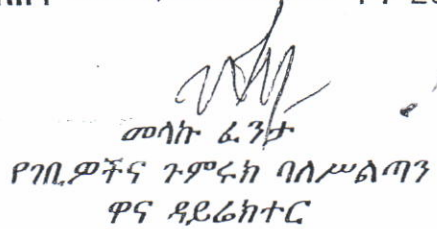 መላኩ ፈንታ
የገቢዎችና ጉምሩክ ባለሥልጣን
ዋና ዳይሬክተር